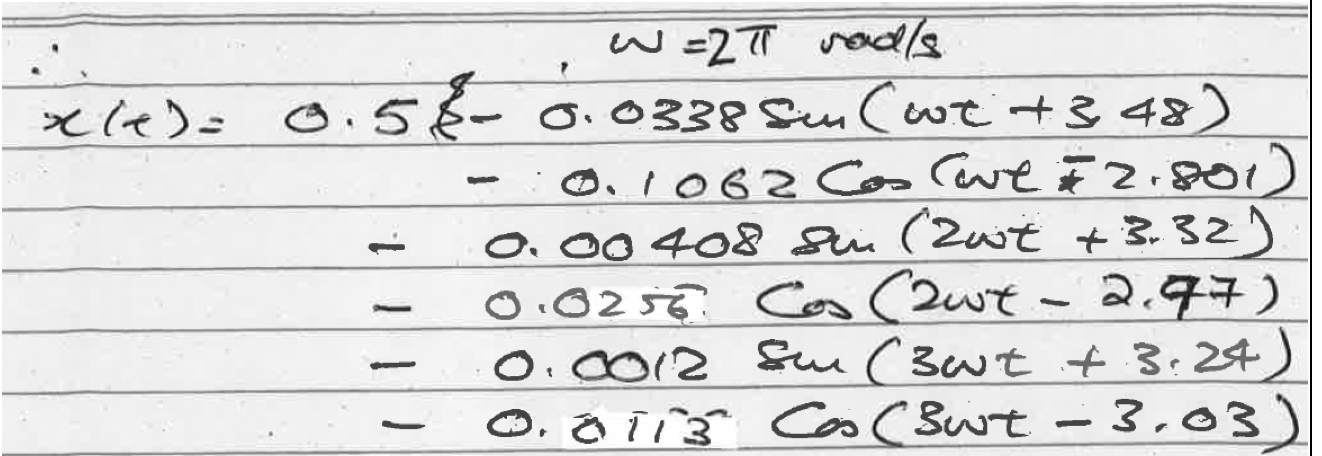 ∴ , ω = 2π rad/s
x(t) = 0.5 { - 0.0338 Sin (ωt + 3.48)
- 0.1062 Cos (ωt - 2.801)
- 0.00408 Sin (2ωt + 3.32)
- 0.0256 Cos (2ωt - 2.97)
- 0.0012 Sin (3ωt + 3.24)
- 0.0113 Cos (3ωt - 3.03)